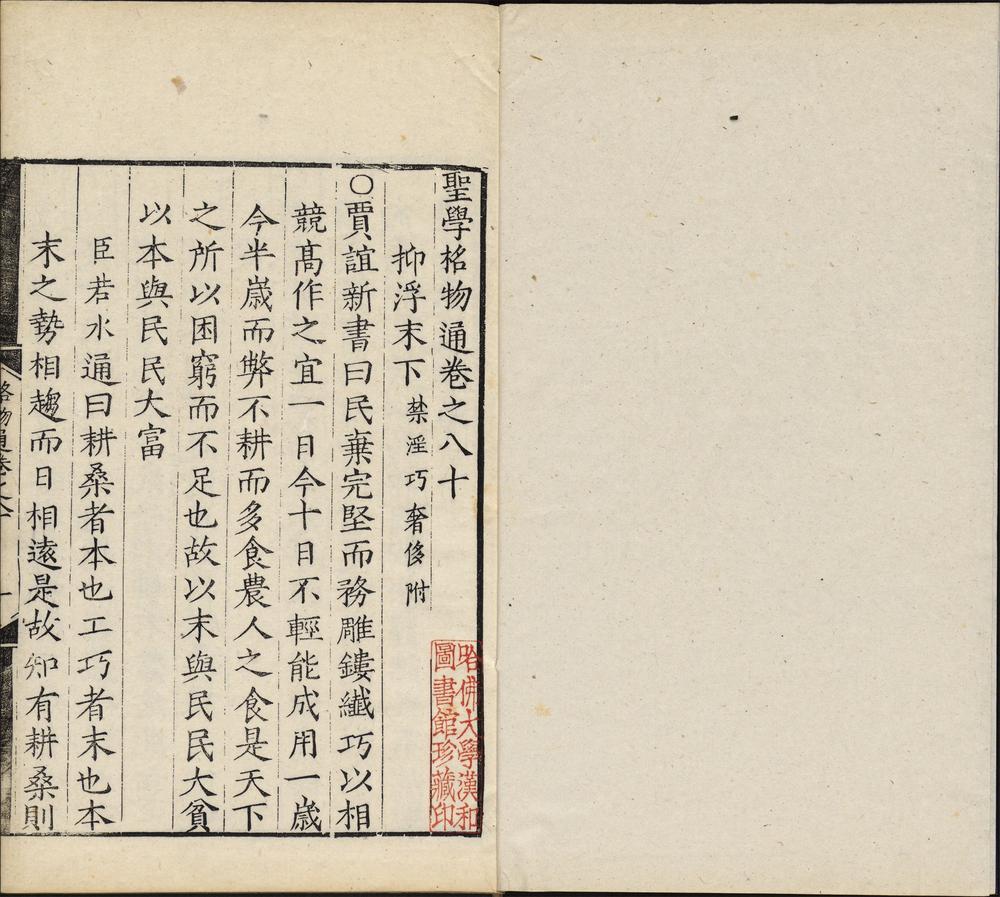 聖學格物通卷之八十
抑浮末下禁淫巧奢侈附
○賈誼新書曰民棄完堅而務雕鏤纖巧以相
競高作之宜一日今十日不輕能成用一歲
今半歲而弊不耕而多食農人之食是天下
之所以困窮而不足也故以末與民民大貧
以本與民民大富
臣若水通曰耕桑者本也工巧者末也本
末之勢相趨而日相遠是故知有耕桑則
格物通卷之八十
一
哈佛大學漢和
圖書館珍藏印